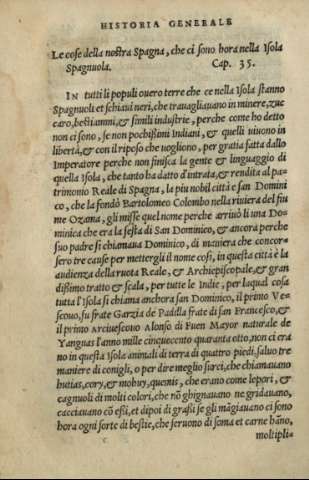 HISTORIA GENERALE
Le cose della nostra Spagna, che ci sono hora nella Isola
Spagnuola. Cap. 35.
IN tutti li populi overo terre che ce nella Isola stanno
Spagnuoli et schiavi neri, che travagliavano in minere, zuc
caro, bestiammi, & simili industrie, perche come ho detto
non ci sono, se non pochissimi Indiani, & quelli vivono in
libertà, & con il riposo che vogliono, per gratia fatta dallo
Imperatore perche non finisca la gente & linguaggio di
quella Isola, che tanto ha datto d'intrata, & rendita al pa-
trimonio Reale di Spagna, la piu nobil città e san Domini
co, che la fondò Bartolomeo Colombo nella riviera del fiu
me Ozama, gli misse quel nome perche arrivò li una Do-
minica che era la festa di San Dominico, & ancora perche
suo padre si chiamava Dominico, di maniera che concor-
sero tre cause per mettergli il nome così, in questa città è la
audienza della ruota Reale, & Archiepiscopale, & gran
dissimo tratto & scala, per tutte le Indie, per laqual cosa
tutta l'Isola si chiama anchora san Dominico, il primo Ve-
scovo, fu frate Garzia de Padilla frate di san Francesco, &
il primo Arcivescovo Alonso di Fuen Mayor naturale de
Yanguas l'anno mille cinquecento quaranta otto, non ci era
no in questa Isola animali di terra di quattro piedi, salvo tre
maniere di conigli, o per dire meglio sorci, che chiamavano
hutias, cory, & mohuy, quemis, che erano come lepori, &
cagnuoli di molti colori, che nõ ghignavano ne gridavano,
cacciavano cõ essi, et dipoi di grassi se gli mãgiavano ci sono
hora ogni sorte di bestie, che servono di soma et carne hãno,
moltipli-